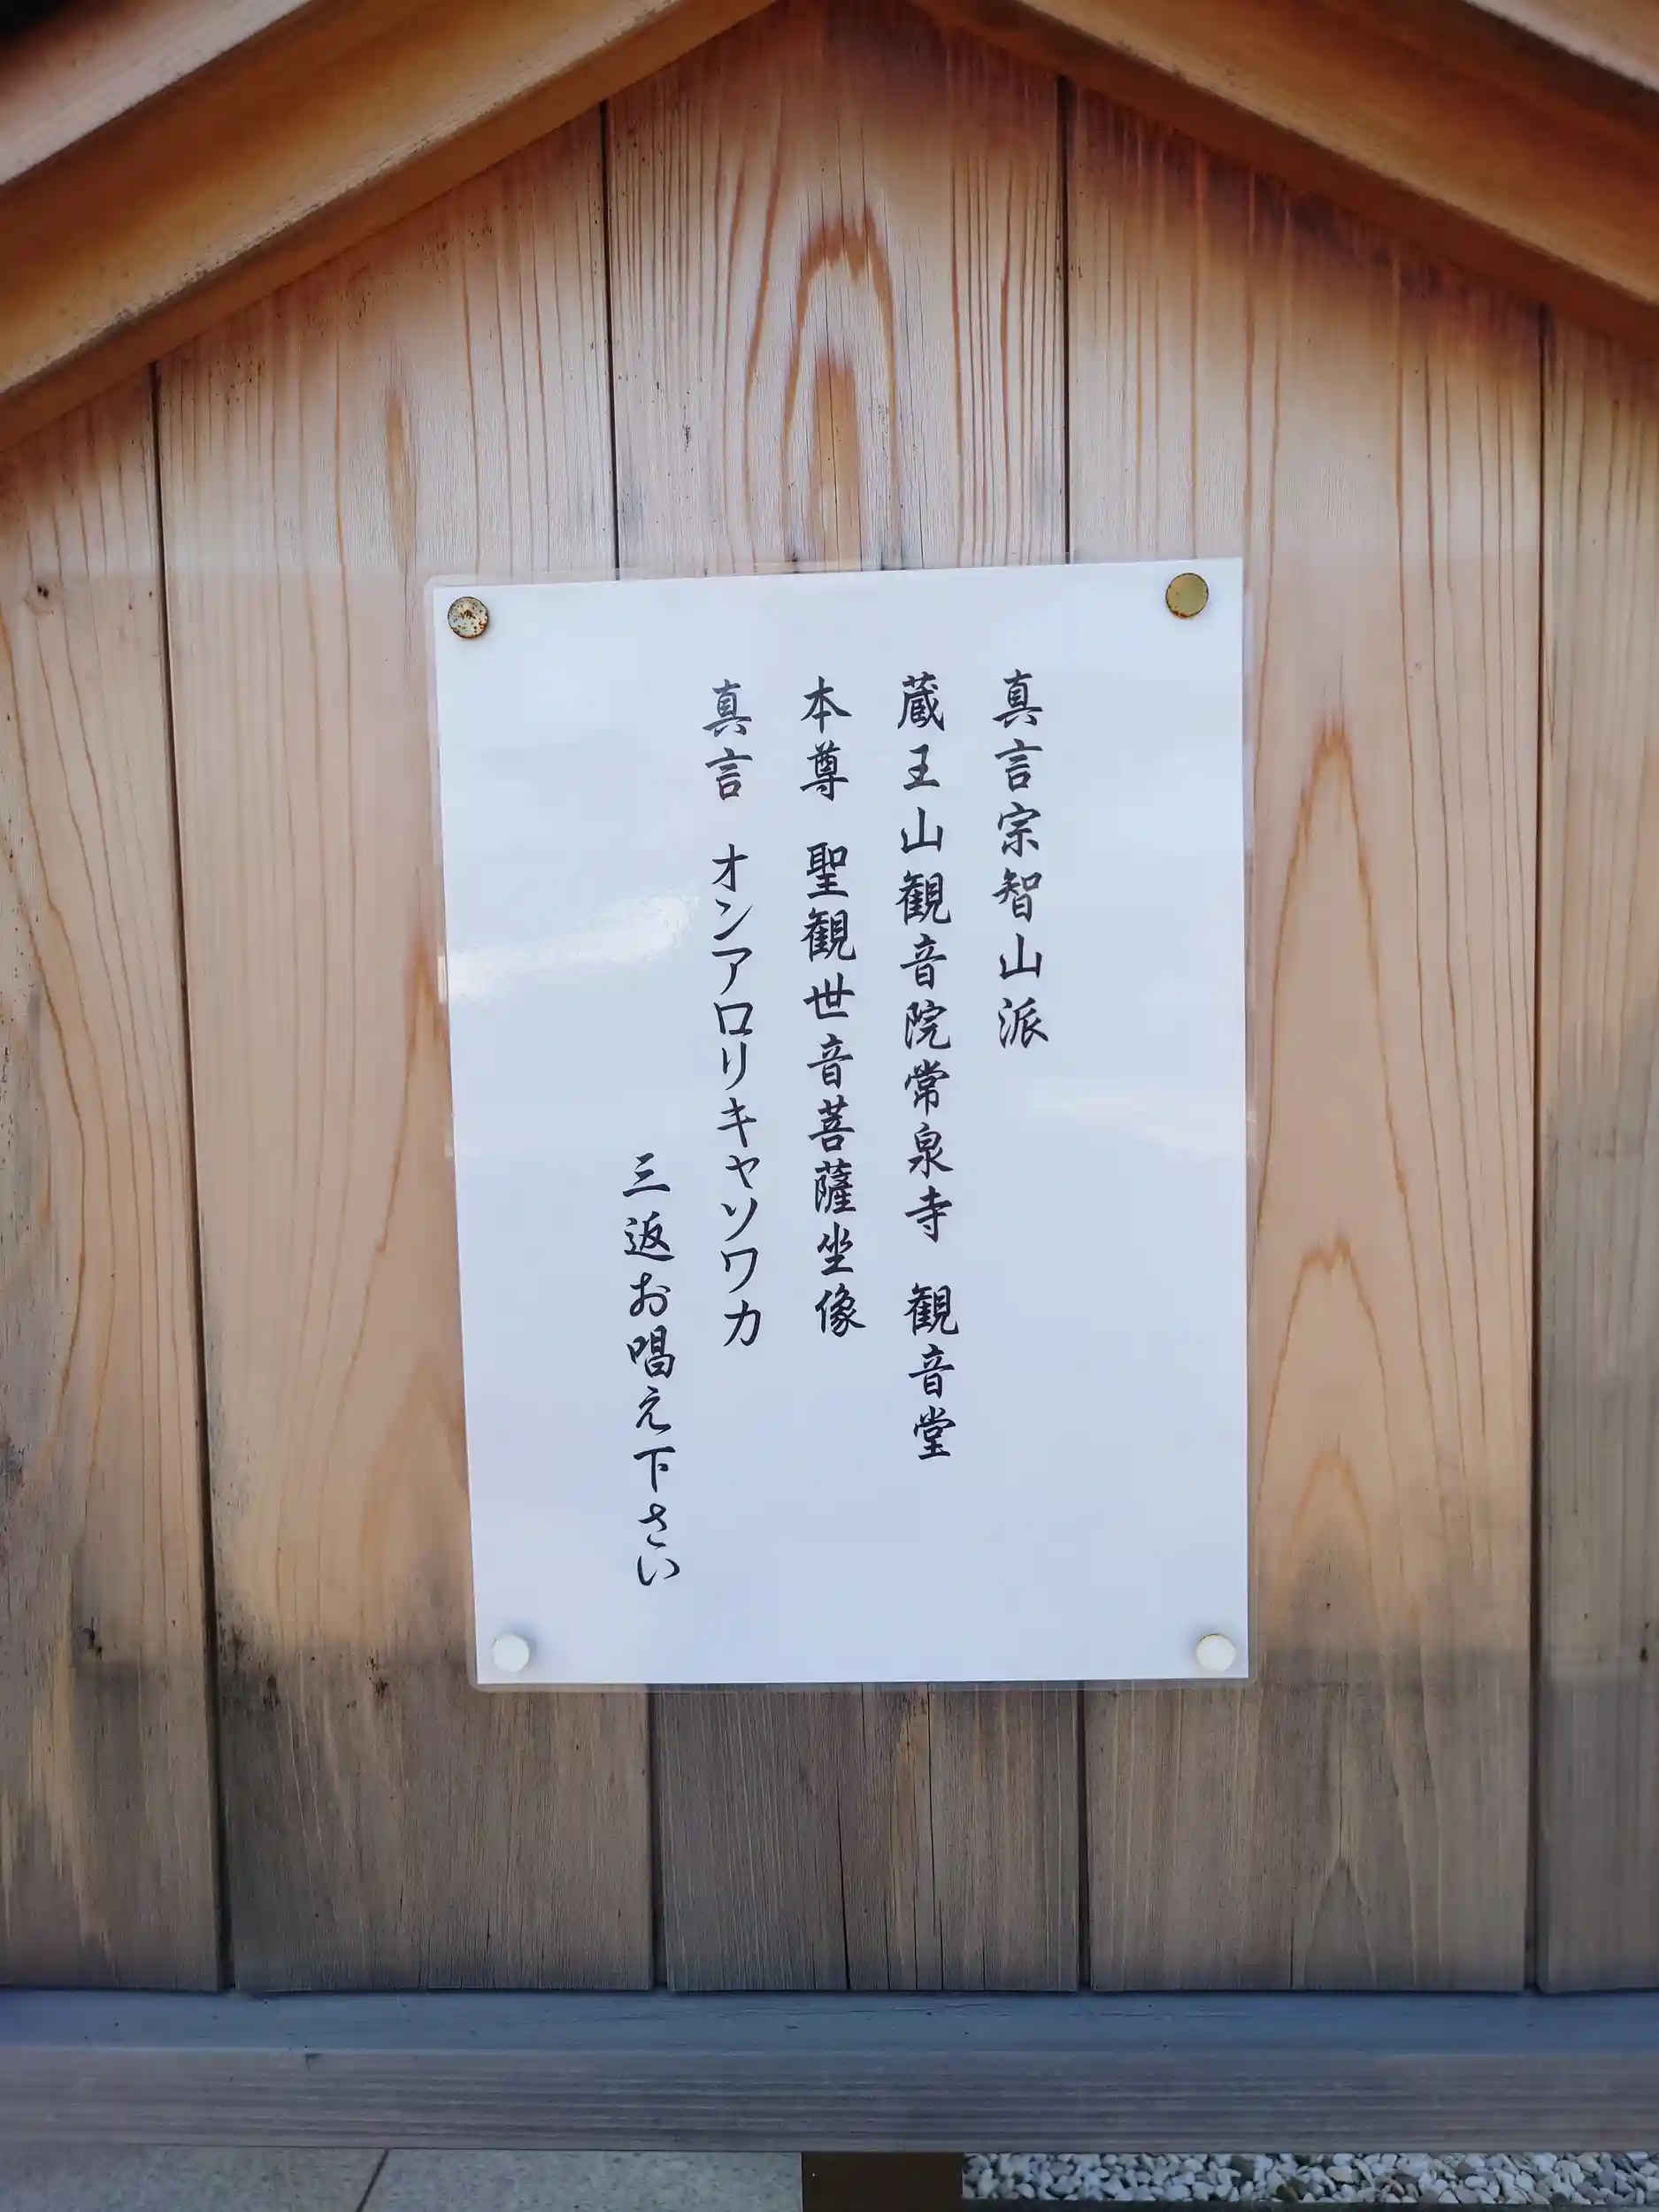 真言宗智山派
蔵王山観音院常泉寺　観音堂
本尊　聖観世音菩薩坐像
真言　オンアロリキャソワカ
三返お唱え下さい